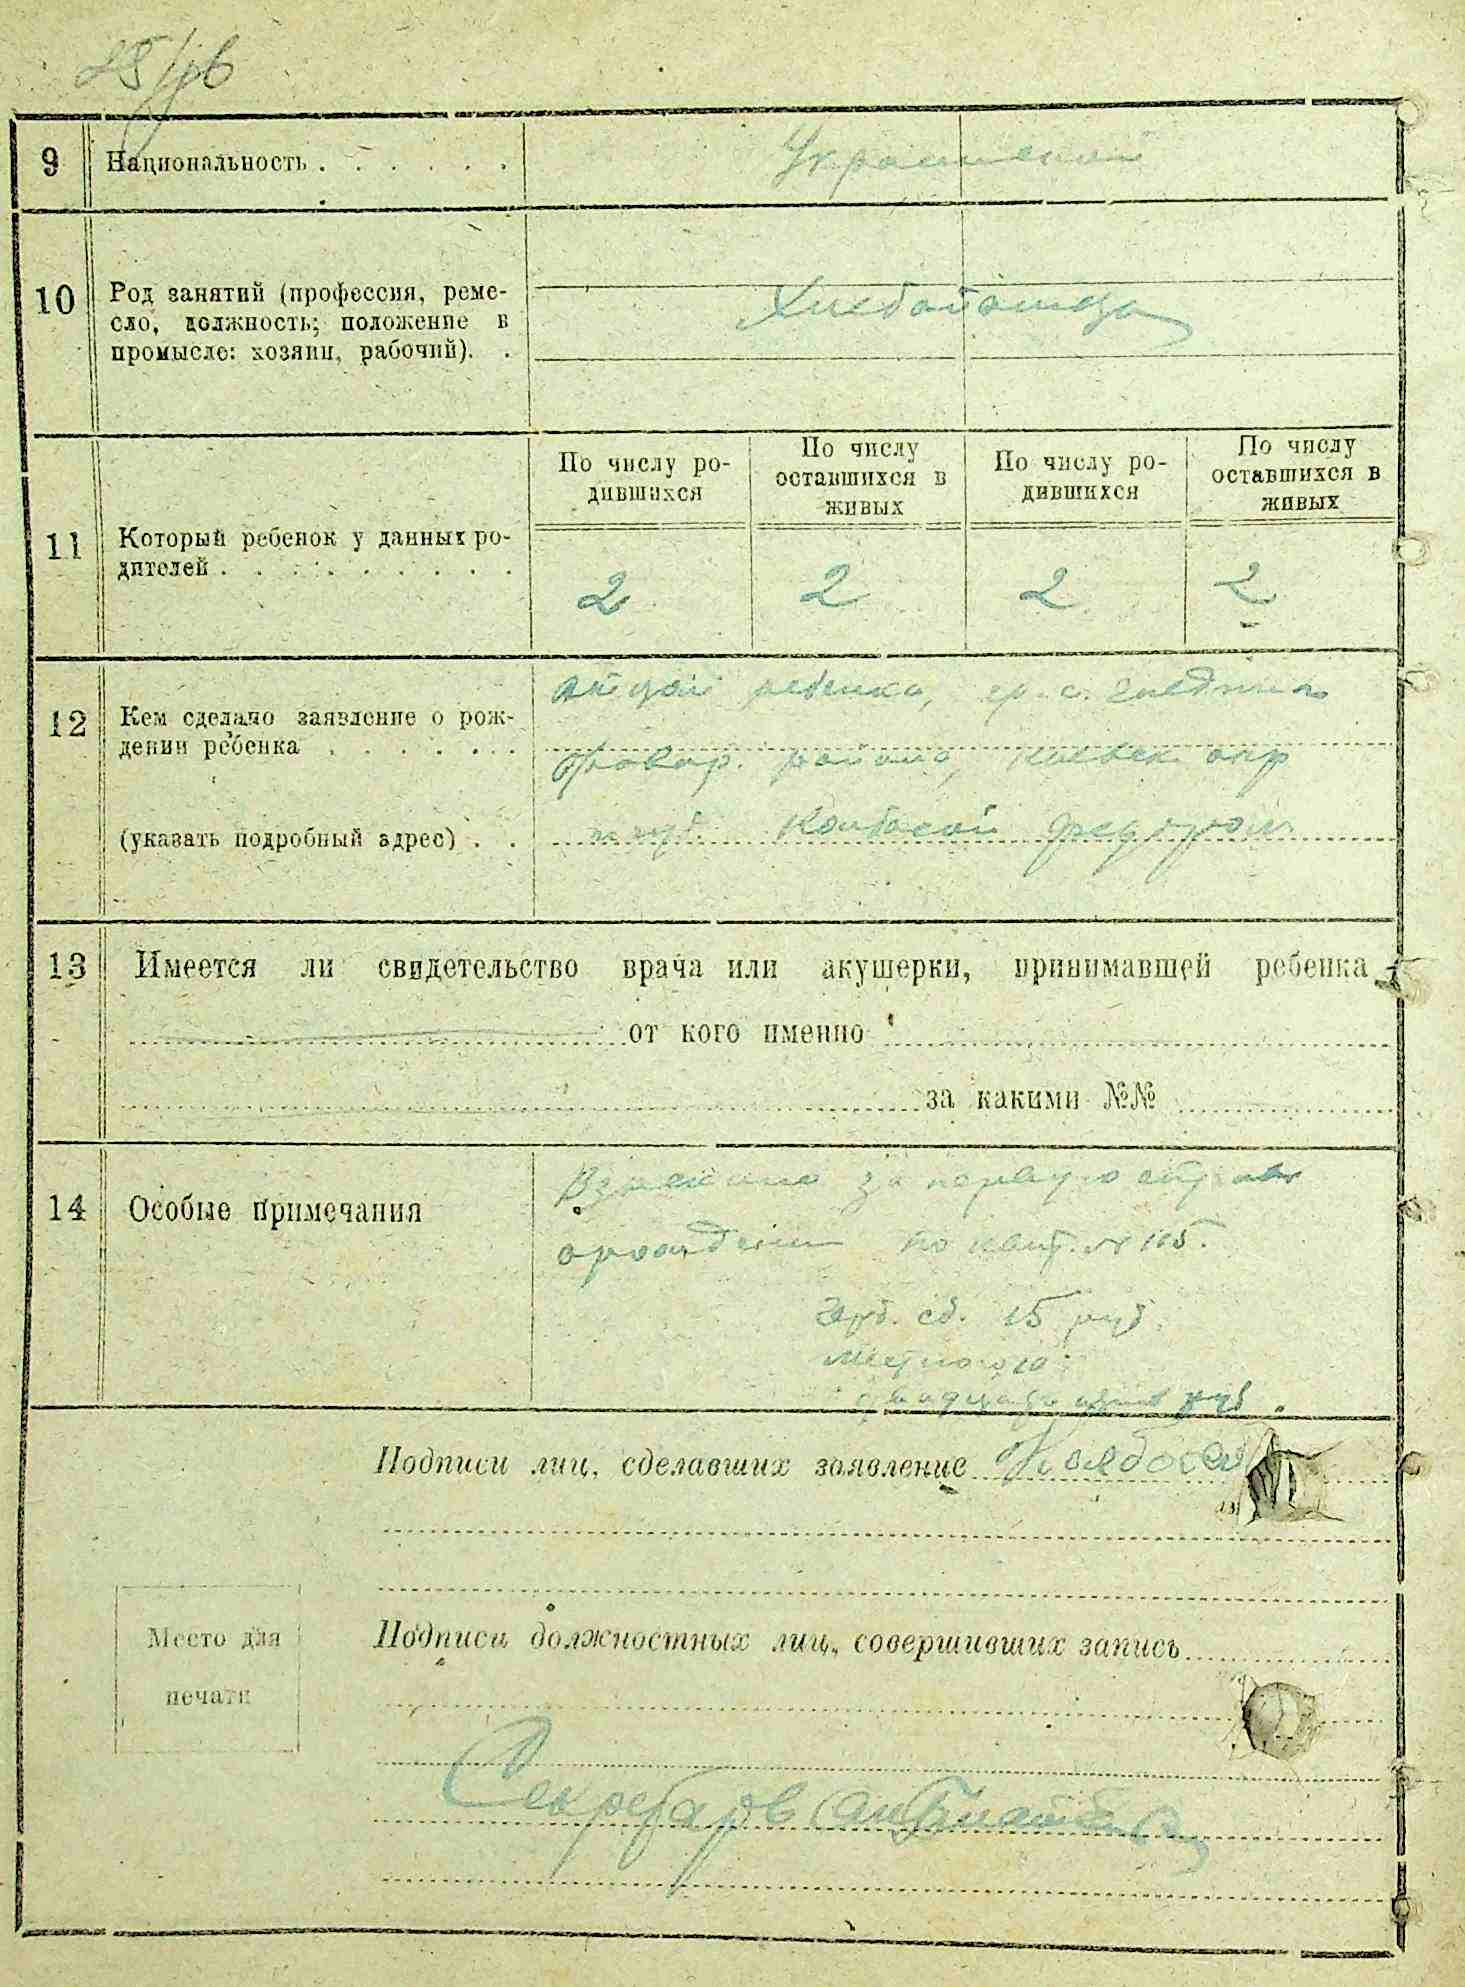 9 Национальность . . . . . .
Украинской
10 Род занятий (профессия, реме-
сло, должность; положение в
промысле: хозяин, рабочий). .
11 Который ребенок у данных ро-
дителей . . . . . . . . . .
По числу ро-
дившихся
По числу
оставшихся в
живых
По числу ро-
дившихся
По числу
оставшихся в
живых
2 2 2 2
12 Кем сделано заявление о рож-
дении ребенка . . . . . .
(указать подробный адрес) . .
отцом ребенка, гр. с.
района, Киевск окр
13 Имеется ли свидетельство врача или акушерки, принимавшей ребенка
от кого именно
за какими №№
14 Особые примечания
Взыскано за первую
по квит. № 115.
сб. 15 руб.
местного 10
двадцать пять руб.
Подписи лиц, сделавших заявление
Место для
печати
Подписи должностных лиц, совершивших запись
Секретарь